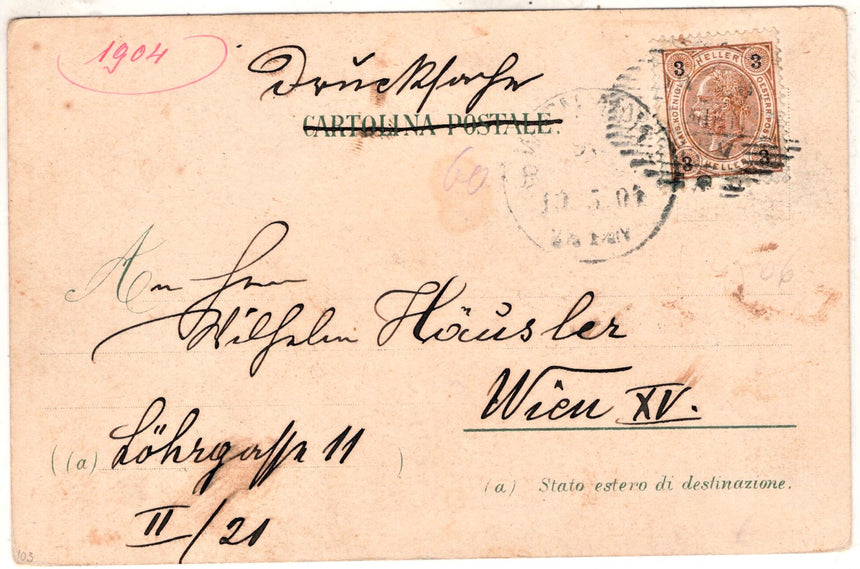 1904
Drucksache
CARTOLINA POSTALE.
3 HELLER 3
KAIS. KOENIGL. OESTERR. POST
3 HELLER 3
60
An Herrn
Wilhelm Häusler
Wien XV.
((a) Löhrgasse 11 )
II/21
(a) Stato estero di destinazione.
103